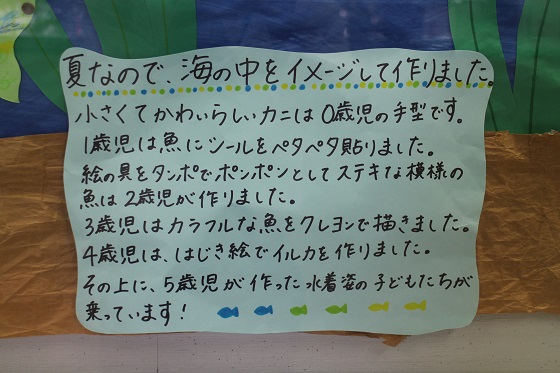 夏なので、海の中をイメージして作りました。
小さくてかわいらしいカニは0歳児の手型です。
1歳児は魚にシールをペタペタ貼りました。
絵の具をタンポで、ポンポンとしてステキな模様の
魚は2歳児が作りました。
3歳児はカラフルな魚をクレヨンで描きました。
4歳児は、はじき絵でイルカを作りました。
その上に、5歳児が作った水着姿の子どもたちが
乗っています!